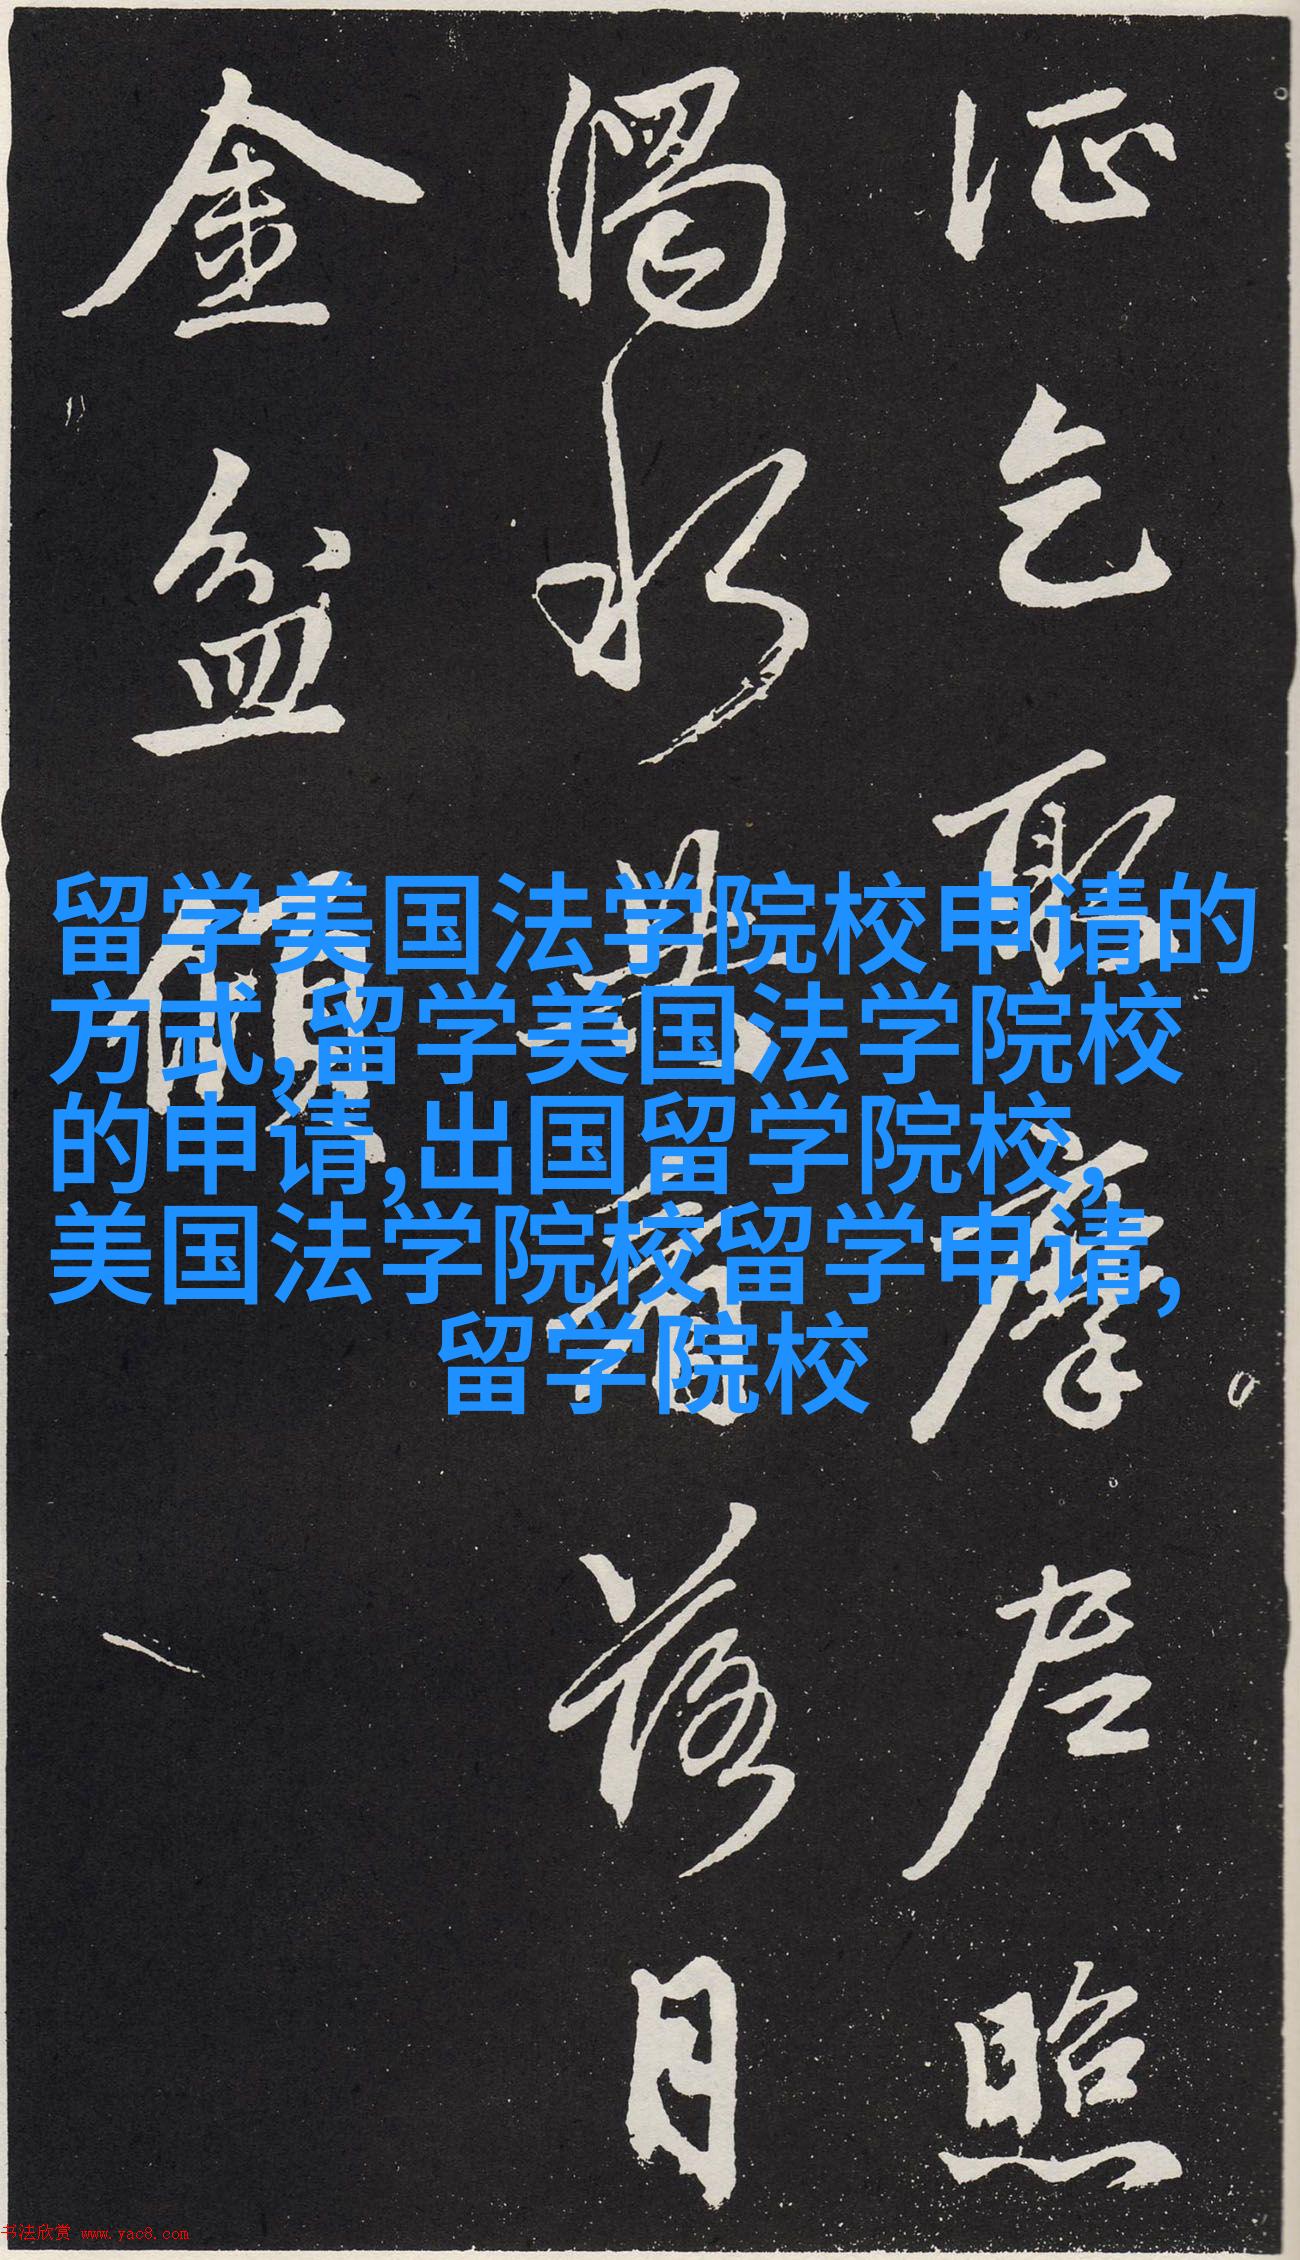 乞聊摩尼照
濁水共看落月
金盆傾
留学美国法学院校申请的
方式,留学美国法学院校
的申请,出国留学院校,
美国法学院校留学申请,
留学院校
书法欣赏 www.yac8.com